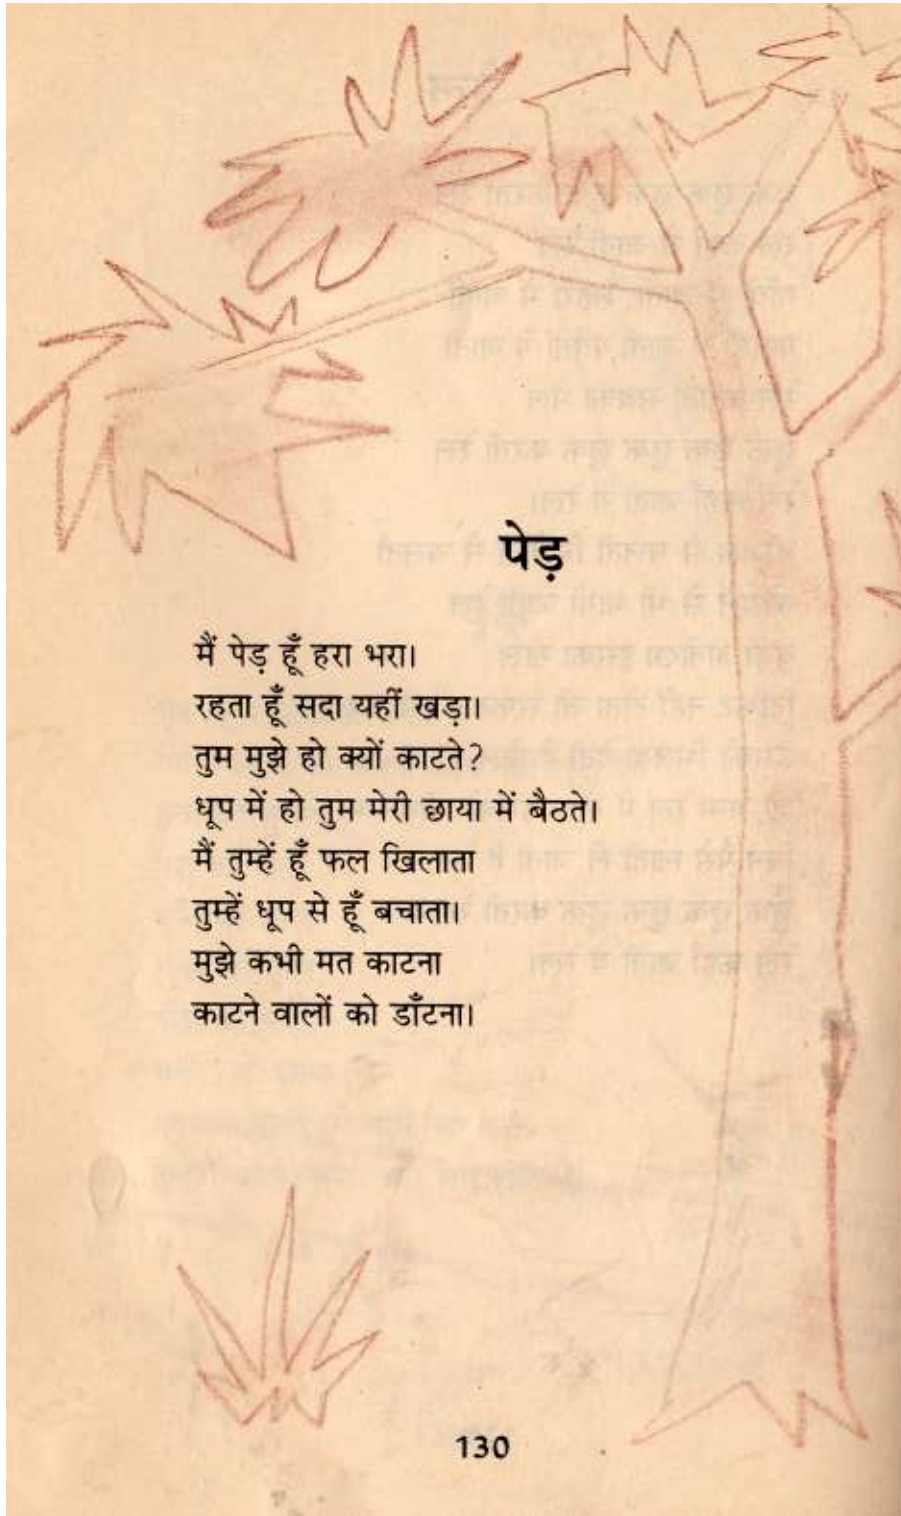 पेड़
मैं पेड़ हूँ हरा भरा।
रहता हूँ सदा यहीं खड़ा।
तुम मुझे हो क्यों काटते?
धूप में हो तुम मेरी छाया में बैठते।
मैं तुम्हें हूँ फल खिलाता
तुम्हें धूप से हूँ बचाता।
मुझे कभी मत काटना
काटने वालों को डाँटना।
130